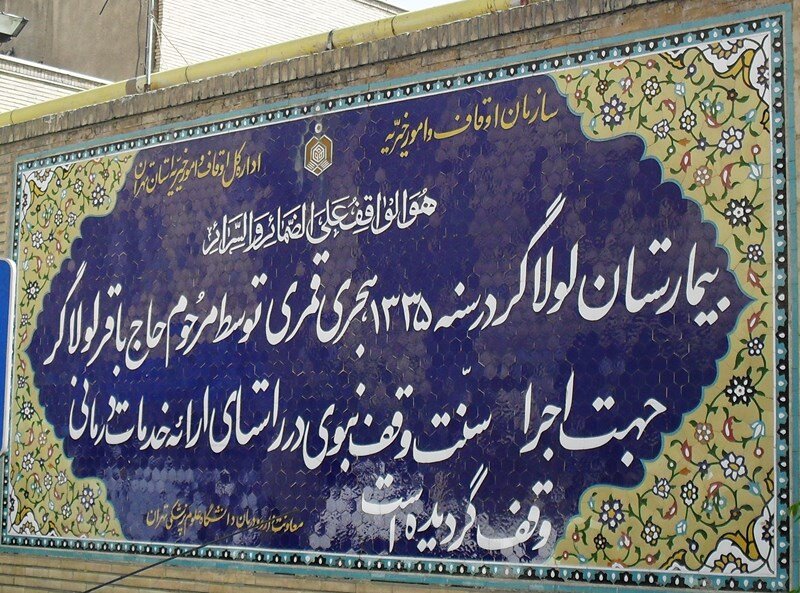 سازمان اوقاف و امور خیریه
اداره کل اوقاف و امور خیریه استان تهران
هوالواقف علی الضمائر والسرائر
بیمارستان لولاگر در سنه ۱۳۳۵ هجری قمری توسط مرحوم حاج باقر لولاگر
جهت اجرا سنّت وقف نبوی در راستای ارائه خدمات درمانی
وقف گردیده است
معاونت امور درمان دانشگاه علوم پزشکی تهران